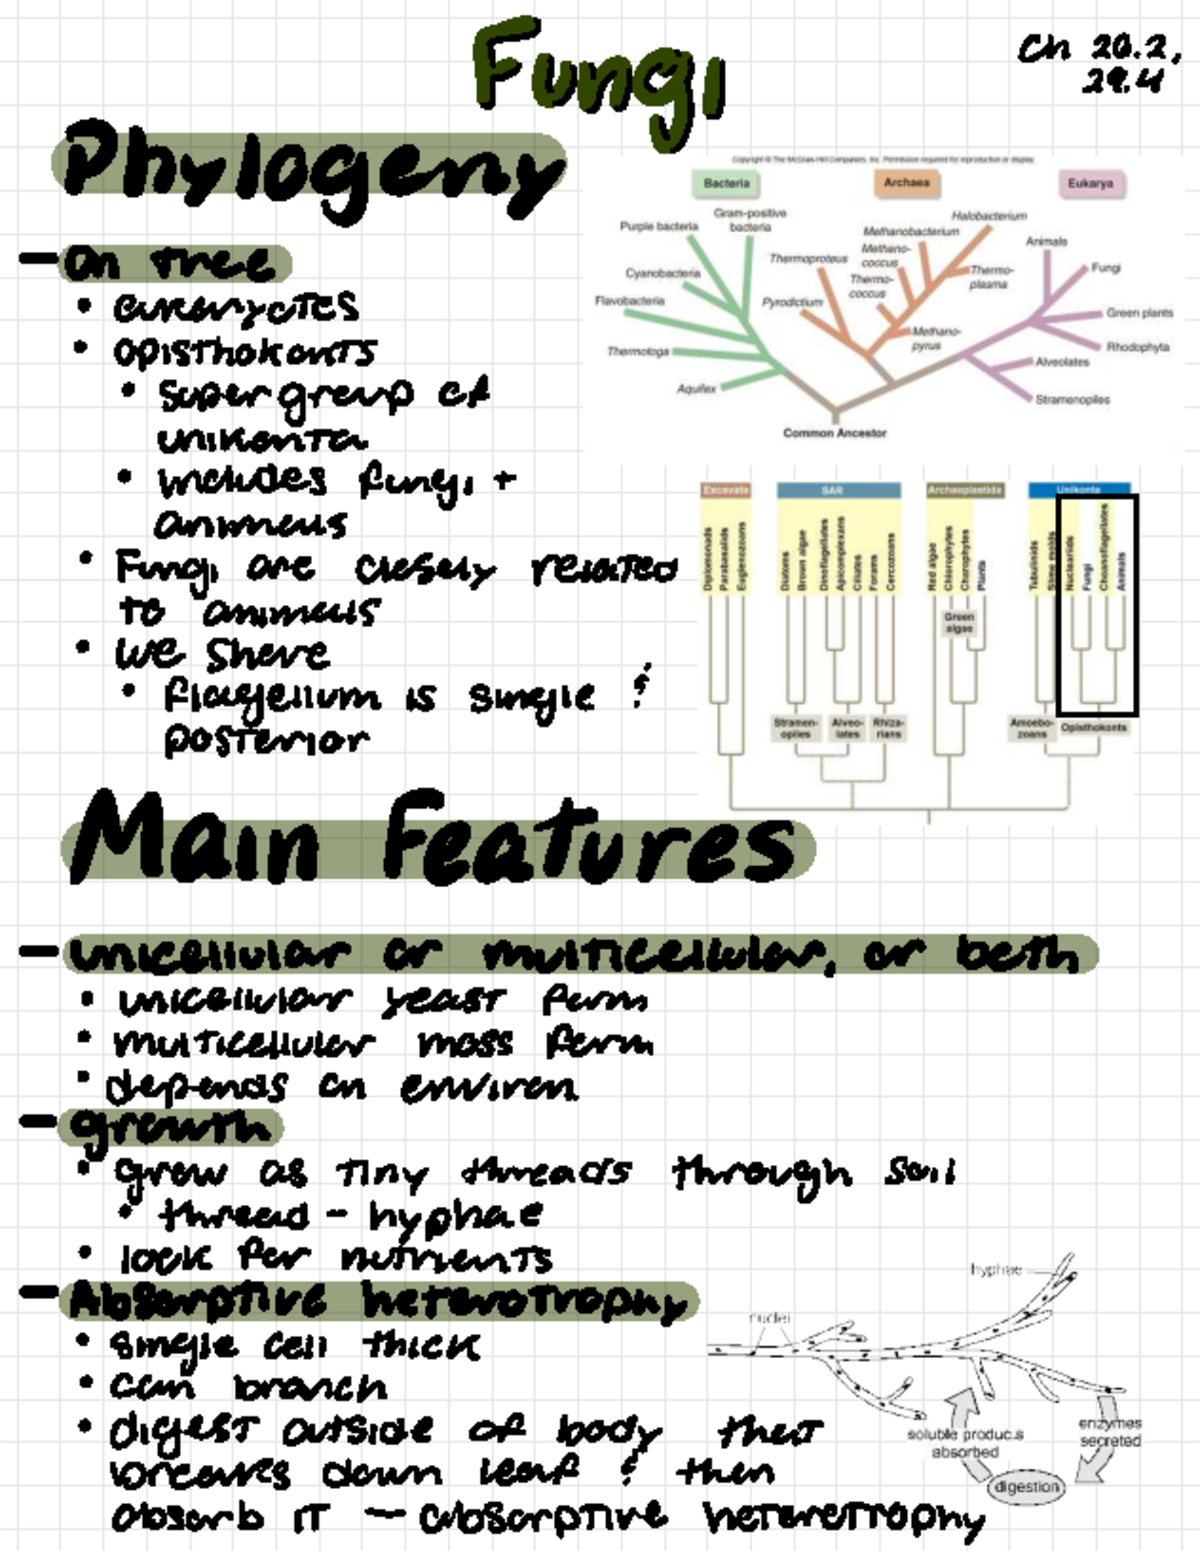 Fungi
Ch 20.2,
29.4
Phylogeny
Copyright © The McGraw-Hill Companies, Inc. Permission required for reproduction or display.
Bacteria
Archaea
Eukarya
Purple bacteria
Gram-positive
bacteria
Cyanobacteria
Flavobacteria
Thermotoga
Aquifex
Thermoproteus
Pyrodictium
Methanobacterium
Methano-
coccus
Thermo-
coccus
Halobacterium
Thermo-
plasma
Methano-
pyrus
Animals
Fungi
Green plants
Rhodophyta
Alveolates
Stramenopiles
Common Ancestor
— on tree
• eukaryotes
• opisthokonts
• supergroup of
unikonta
• includes fungi +
animals
• Fungi are closely related
to animals
• we share
• flagellum is single &
posterior
Excavata
SAR
Archaeplastida
Unikonta
Diplomonads
Parabasalids
Euglenozoans
Diatoms
Brown algae
Dinoflagellates
Apicomplexans
Ciliates
Forams
Cercozoans
Red algae
Chlorophytes
Charophytes
Plants
Tubulinids
Slime molds
Nucleariids
Fungi
Choanoflagellates
Animals
Green
algae
Stramen-
opiles
Alveo-
lates
Rhiza-
rians
Amoebo-
zoans
Opisthokonts
Main Features
— unicellular or multicellular, or both
• unicellular yeast form
• multicellular moss form
• depends on environ
— growth
• grow as tiny threads through soil
• thread - hyphae
• look for nutrients
— Absorptive heterotrophy
• single cell thick
• can branch
• digest outside of body that
breaks down leaf & then
absorb it — absorptive heterotrophy
hyphae
nuclei
soluble products
absorbed
enzymes
secreted
digestion